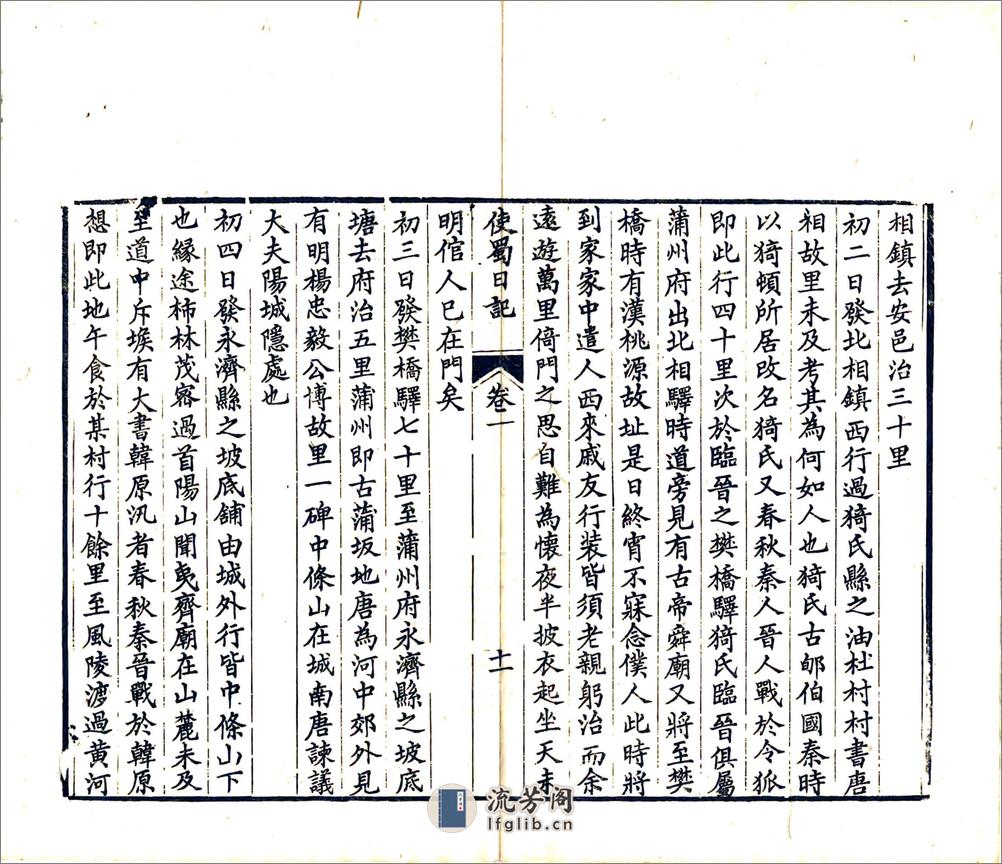 相鎮去安邑治三十里
初二日發北相鎮西行過猗氏縣之油杜村村書唐
相故里未及考其為何如人也猗氏古郇伯國秦時
以猗頓所居改名猗氏又春秋秦人晉人戰於令狐
即此行四十里次於臨晉之樊橋驛猗氏臨晉俱屬
蒲州府出北相驛時道旁見有古帝舜廟又將至樊
橋時有漢桃源故址是日終宵不寐念僕人此時將
到家家中遣人西來戚友行裝皆須老親躬治而余
遠遊萬里倚門之思自難為懷夜半披衣起坐天未
使蜀日記 卷一 十一
明倌人已在門矣
初三日發樊橋驛七十里至蒲州府永濟縣之坡底
塘去府治五里蒲州即古蒲坂地唐為河中郊外見
有明楊忠毅公博故里一碑中條山在城南唐諫議
大夫陽城隱處也
初四日發永濟縣之坡底舖由城外行皆中條山下
也緣途柿林茂密過首陽山聞夷齊廟在山麓未及
至道中斥堠有大書韓原汛者春秋秦晉戰於韓原
想即此地午食於某村行十餘里至風陵渡過黃河
流芳阁
lfglib.cn